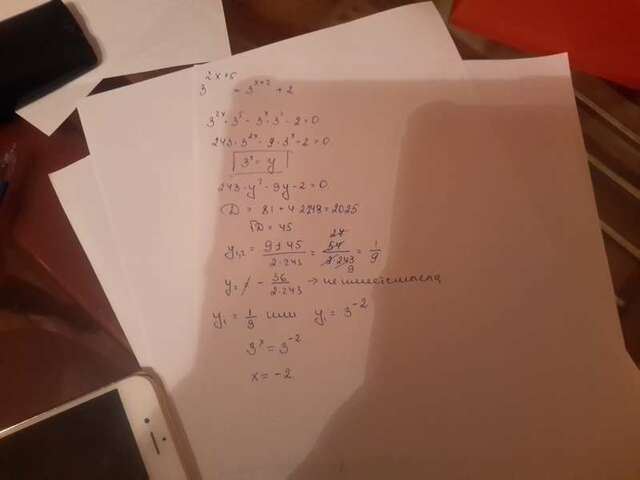 3^{2x+5} = 3^{x+2} + 2
3^{2x}·3^5 - 3^x·3^2 - 2 = 0
243·3^{2x} - 9·3^x - 2 = 0
3^x = y
243·y^2 - 9y - 2 = 0
D = 81 + 4·2·243 = 2025
√D = 45
y_{1,2} = (9 ± 45)/(2·243) = 54/(2·243) = 1/9
y_2 = - 36/(2·243) → не имеет смысла
y_1 = 1/9 или y_1 = 3^{-2}
3^x = 3^{-2}
x = -2